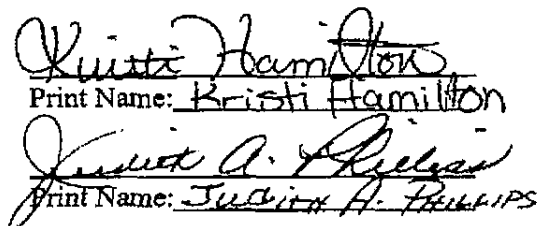 Kristi Hamilton
Print Name: Kristi Hamilton
Judith A. Phillips
Print Name: Judith A. Phillips